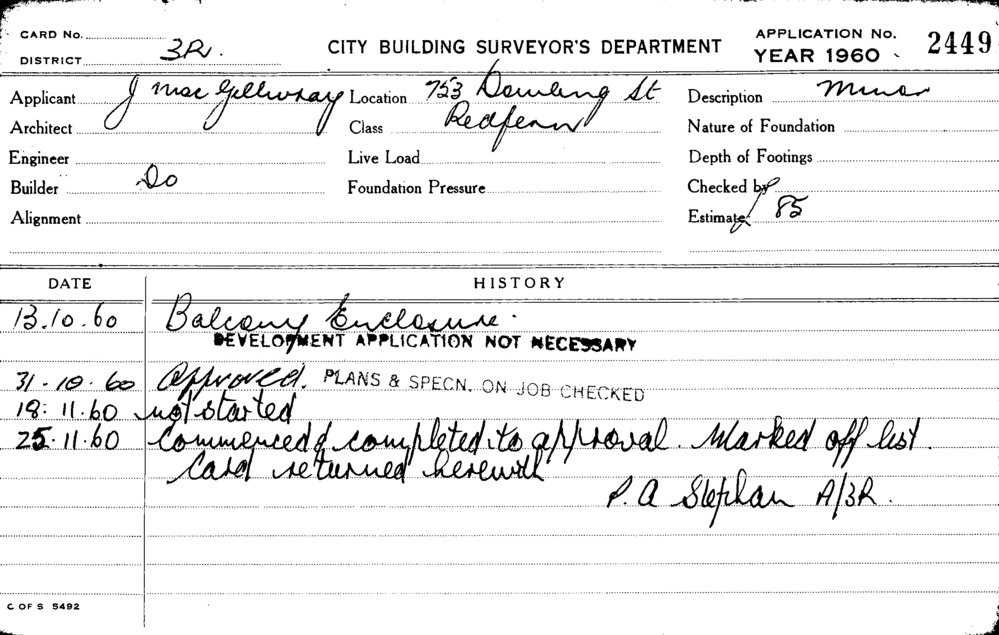 CARD No.
DISTRICT 3R.
CITY BUILDING SURVEYOR'S DEPARTMENT
APPLICATION No. 2449
YEAR 1960
Applicant J MacGillivray
Location 753 Dowling St
Description Minor
Architect
Class Redfern
Nature of Foundation
Engineer
Live Load
Depth of Footings
Builder Do
Foundation Pressure
Checked by
Alignment
Estimate £85
DATE HISTORY
13.10.60 Balcony Enclosure.
DEVELOPMENT APPLICATION NOT NECESSARY
31.10.60 Approved. PLANS & SPECN. ON JOB CHECKED
18.11.60 not started
25.11.60 Commenced & completed to approval. Marked off list.
Card returned herewith
P. A Stephan A/3R.
C OF S 5492